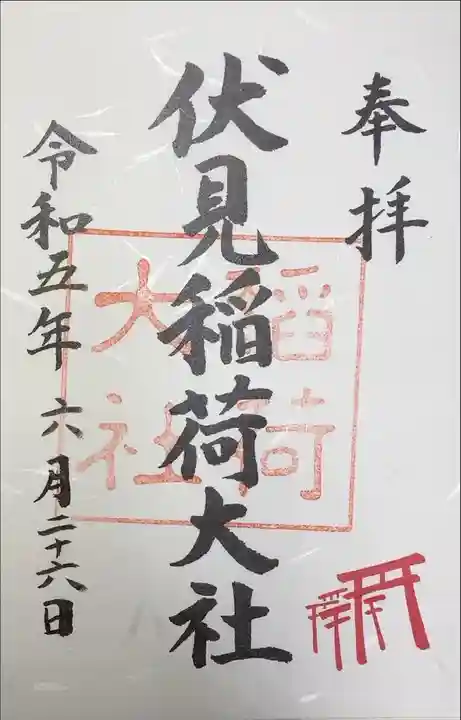 奉拝
伏見稲荷大社
稲荷
大社
令和五年 六月二十六日